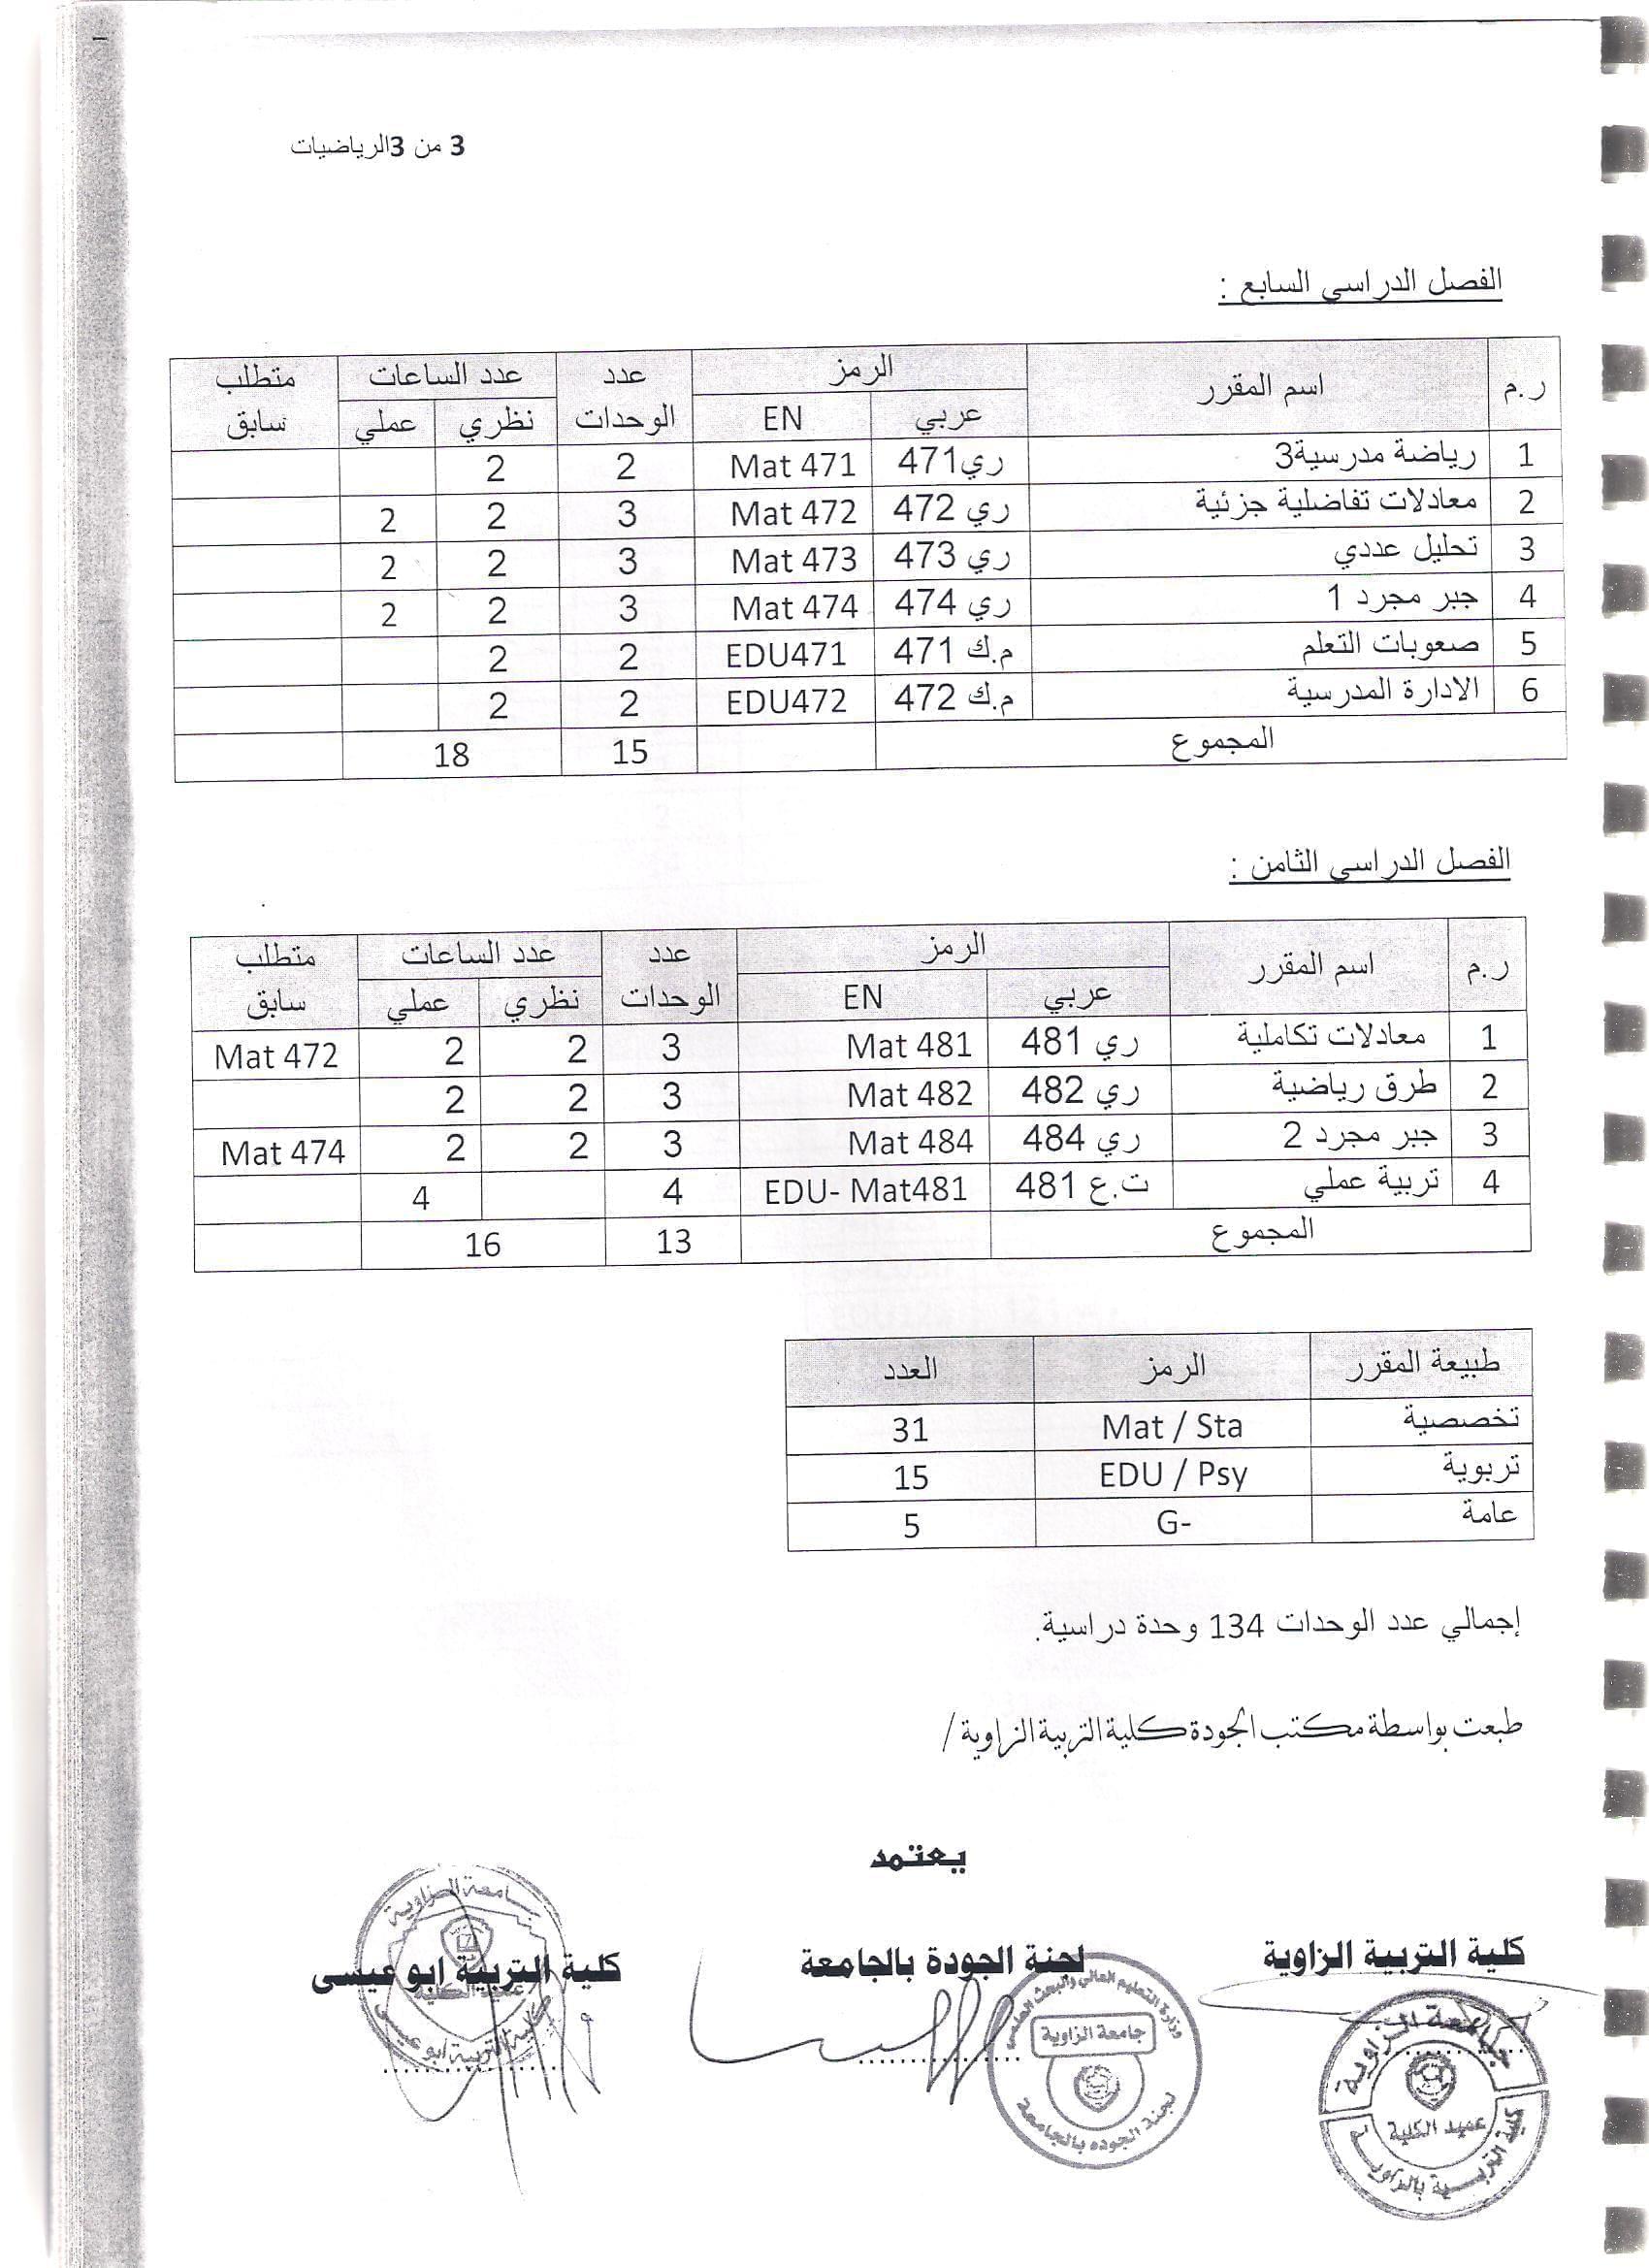 3 من 3الرياضيات
الفصل الدراسي السابع :
ر.م اسم المقرر الرمز عدد الوحدات عدد الساعات متطلب سابق
عربي EN نظري عملي
1 رياضة مدرسية3 ري471 Mat 471 2 2
2 معادلات تفاضلية جزئية ري 472 Mat 472 3 2 2
3 تحليل عددي ري 473 Mat 473 3 2 2
4 جبر مجرد 1 ري 474 Mat 474 3 2 2
5 صعوبات التعلم م.ك 471 EDU471 2 2
6 الادارة المدرسية م.ك 472 EDU472 2 2
المجموع 15 18
الفصل الدراسي الثامن :
ر.م اسم المقرر الرمز عدد الوحدات عدد الساعات متطلب سابق
عربي EN نظري عملي
1 معادلات تكاملية ري 481 Mat 481 3 2 2 Mat 472
2 طرق رياضية ري 482 Mat 482 3 2 2
3 جبر مجرد 2 ري 484 Mat 484 3 2 2 Mat 474
4 تربية عملي ت.ع 481 EDU- Mat481 4 4
المجموع 13 16
طبيعة المقرر الرمز العدد
تخصصية Mat / Sta 31
تربوية EDU / Psy 15
عامة G- 5
إجمالي عدد الوحدات 134 وحدة دراسية.
طبعت بواسطة مكتب الجودة كلية التربية الزاوية /
يعتمد
كلية التربية الزاوية لجنة الجودة بالجامعة كلية التربية ابو عيسى
جامعة الزاوية
عميد الكلية
كلية التربية بالزاوية
وزارة التعليم العالي والبحث العلمي
جامعة الزاوية
لجنة الجوده بالجامعة
جامعة الزاوية
عميد الكلية
كلية التربية ابو عيسى